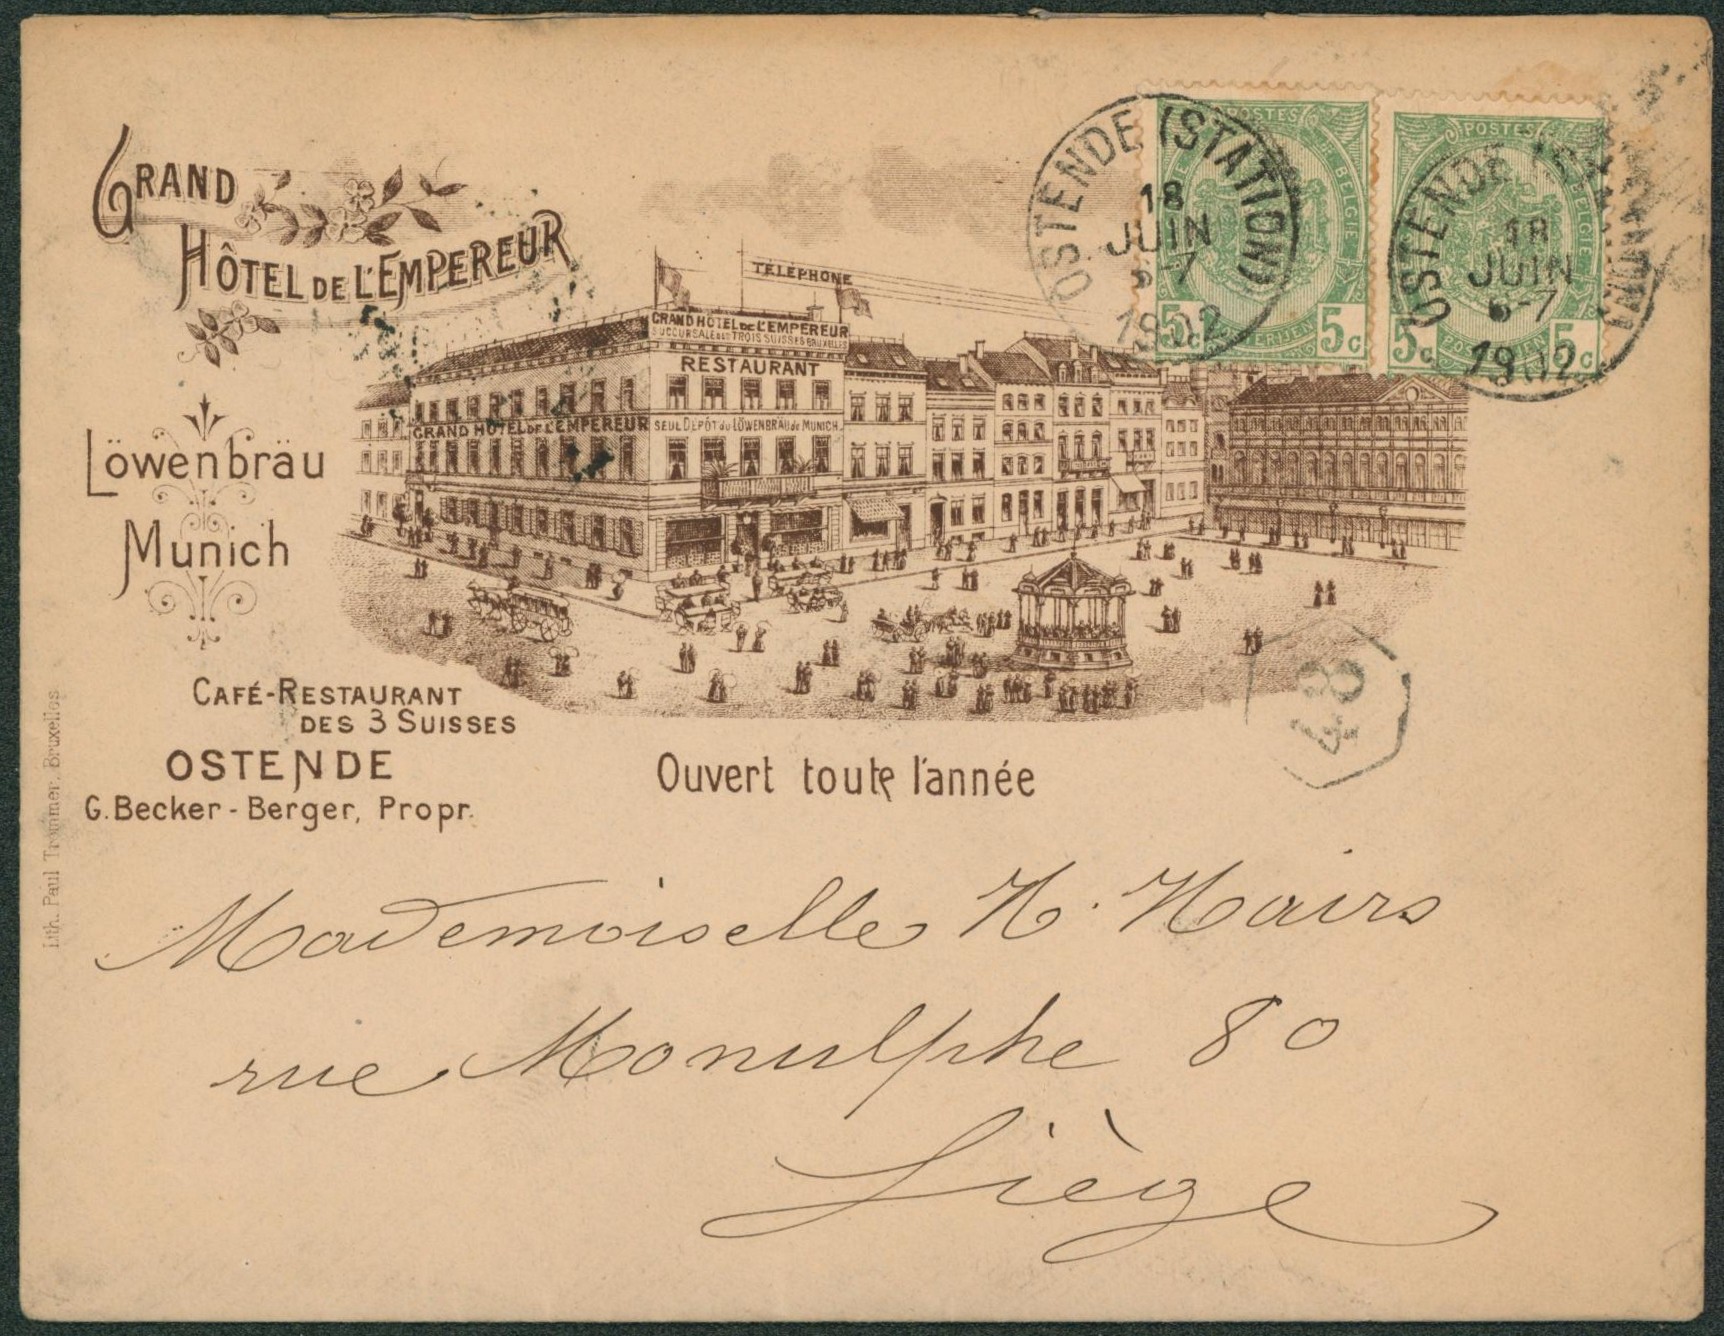 GRAND
HÔTEL DE L'EMPEREUR
Löwenbräu
Munich
CAFÉ-RESTAURANT
DES 3 SUISSES
OSTENDE
G. Becker-Berger, Propr.
Lith. Paul Trommer, Bruxelles
TÉLÉPHONE
GRAND HÔTEL DE L'EMPEREUR
SUCCURSALE DES TROIS SUISSES BRUXELLES
RESTAURANT
GRAND HÔTEL DE L'EMPEREUR
SEUL DÉPÔT du LÖWENBRÄU de MUNICH.
Ouvert toute l'année
OSTENDE (STATION)
18
JUIN
6-7
1902
POSTES
DE BELGIE
5c
5c
OSTENDE (STATION)
18
JUIN
6-7
1902
POSTES
BELGIE
5c
5c
48
Mademoiselle H. Hairs
rue Monulphe 80
Liège